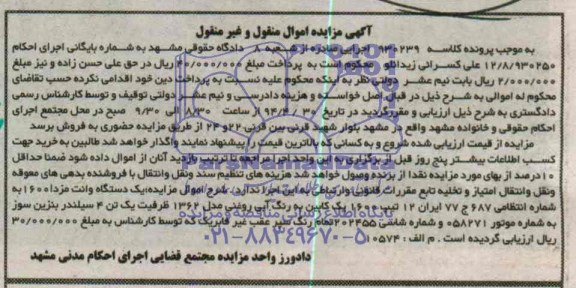 آگهی مزایده اموال منقول و غیر منقول
به موجب پرونده کلاسه ۹۳۰۲۳۹ اجرایی صادره از شعبه ۸ دادگاه حقوقی مشهد به شماره بایگانی اجرای احکام
۱۲/۸/۹۳۰۲۵۰ علی کسرائی زیدانلو محکوم است به پرداخت مبلغ ۴۰/۰۰۰/۰۰۰ ریال در حق علی حسن زاده و نیز مبلغ
۲/۰۰۰/۰۰۰ ریال بابت نیم عشر دولتی نظر به اینکه محکوم علیه نسبت به پرداخت دین خود اقدامی نکرده حسب تقاضای
محکوم له اموالی به شرح ذیل در قبال اصل خواسته و هزینه دادرسی و نیم عشر دولتی توقیف و توسط کارشناس رسمی
دادگستری به شرح ذیل ارزیابی و مقرر گردید در تاریخ ۳۰ / / ۹۴ از ساعت ۸/۳۰ الی ۹/۳۰ صبح در محل مجتمع اجرای
احکام حقوقی و خانواده مشهد واقع در مشهد بلوار شهید قرنی بین قرنی ۲۲ و ۲۴ از طریق مزایده حضوری به فروش برسد
مزایده از قیمت ارزیابی شده شروع و به کسانی که بالاترین قیمت را پیشنهاد نمایند واگذار خواهد شد طالبین به خرید جهت
کسب اطلاعات بیشتر پنج روز قبل از برگزاری به این واحد اجرا مراجعه تا ترتیب بازدید آنان از اموال داده شود ضمنا حداقل
۱۰ درصد از بهای مورد مزایده نقدا از برنده وصول خواهد شد هزینه های تنظیم سند ونقل وانتقال با فروشنده بدهی های معوقه
ونقل وانتقال امتیاز و تخلیه تابع مقررات قانونی وارتباطی به این اجرا ندارد. شرح اموال مزایده:یک دستگاه وانت مزدا۱۶۰۰ به
شماره انتظامی ۶۸۷ ج ۷۷ ایران ۱۲ تیپ ۱۶۰۰ تک کابین به رنگ آبی روغنی مدل ۱۳۶۲ ظرفیت یک تن ۴ سیلندر بنزین سوز
به شماره موتور ۰۵۸۲۷۱ و شماره شاسی ۲۰۲۴۵۵ تمام رنگ سپر عقب غیر فابریک که توسط کارشناس به مبلغ ۳۰/۰۰۰/۰۰۰
ریال ارزیابی گردیده است . م الف : ۱۰۵۷۴
دادورز واحد مزایده مجتمع قضایی اجرای احکام مدنی مشهد
پایگاه اطلاع رسانی مناقصه و مزایده
۰۲۱-۸۸۳۴۹۶۷۰-۵